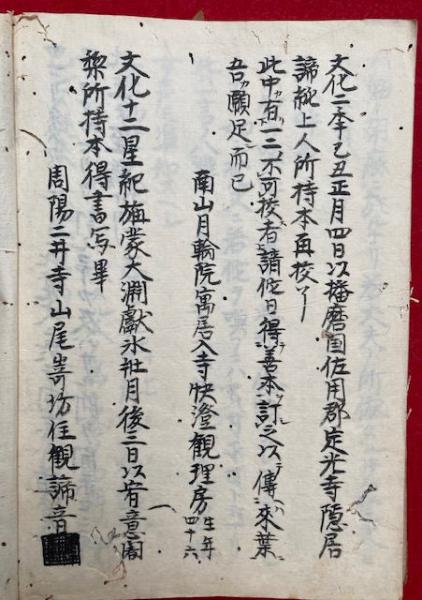 文化二季乙丑正月四日以播磨国佐用郡定光寺隠居
諦純上人所持本再挍了
此中有一二不可挍者請佗日得善本訂之以傳來葉
吾願足而已
南山月輪院寓居入寺快澄観理房生年四十六
文化十二星紀旃蒙大淵獻氷壯月後三日以宥意闍
梨所持本得書写畢
周陽二井寺山尾嵜坊住観諦音